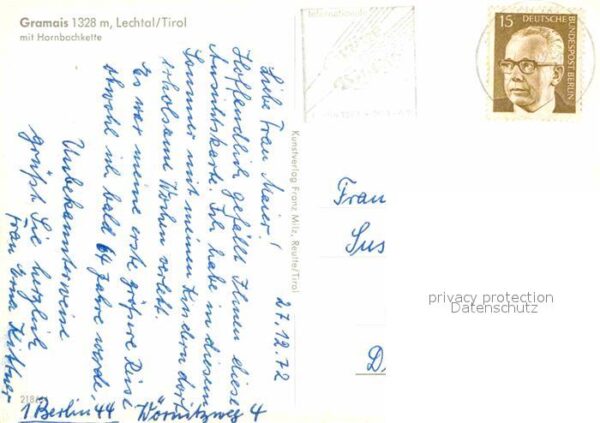 Gramais 1328 m, Lechtal/Tirol
mit Hornbachkette
27.12.72
Liebe Frau Maier!
Hoffendlich gefällt Ihnen diese
Ansichtskarte. Ich habe in diesem
Sommer mit meinen Kindern dort
erholsame Wochen verlebt.
Es war meine erste größere Reise
obwohl ich bald 64 Jahre werde.
Unbekannterweise
grüßt Sie herzlich
Frau Erna Kittner
1 Berlin 44 Wörnitzweg 4
218/
Kunstverlag Franz Milz, Reutte/Tirol
Internationale
GRÜNE
WOCHE
15
DEUTSCHE
BUNDESPOST BERLIN
Frau
Sus
D.
privacy protection
Datenschutz